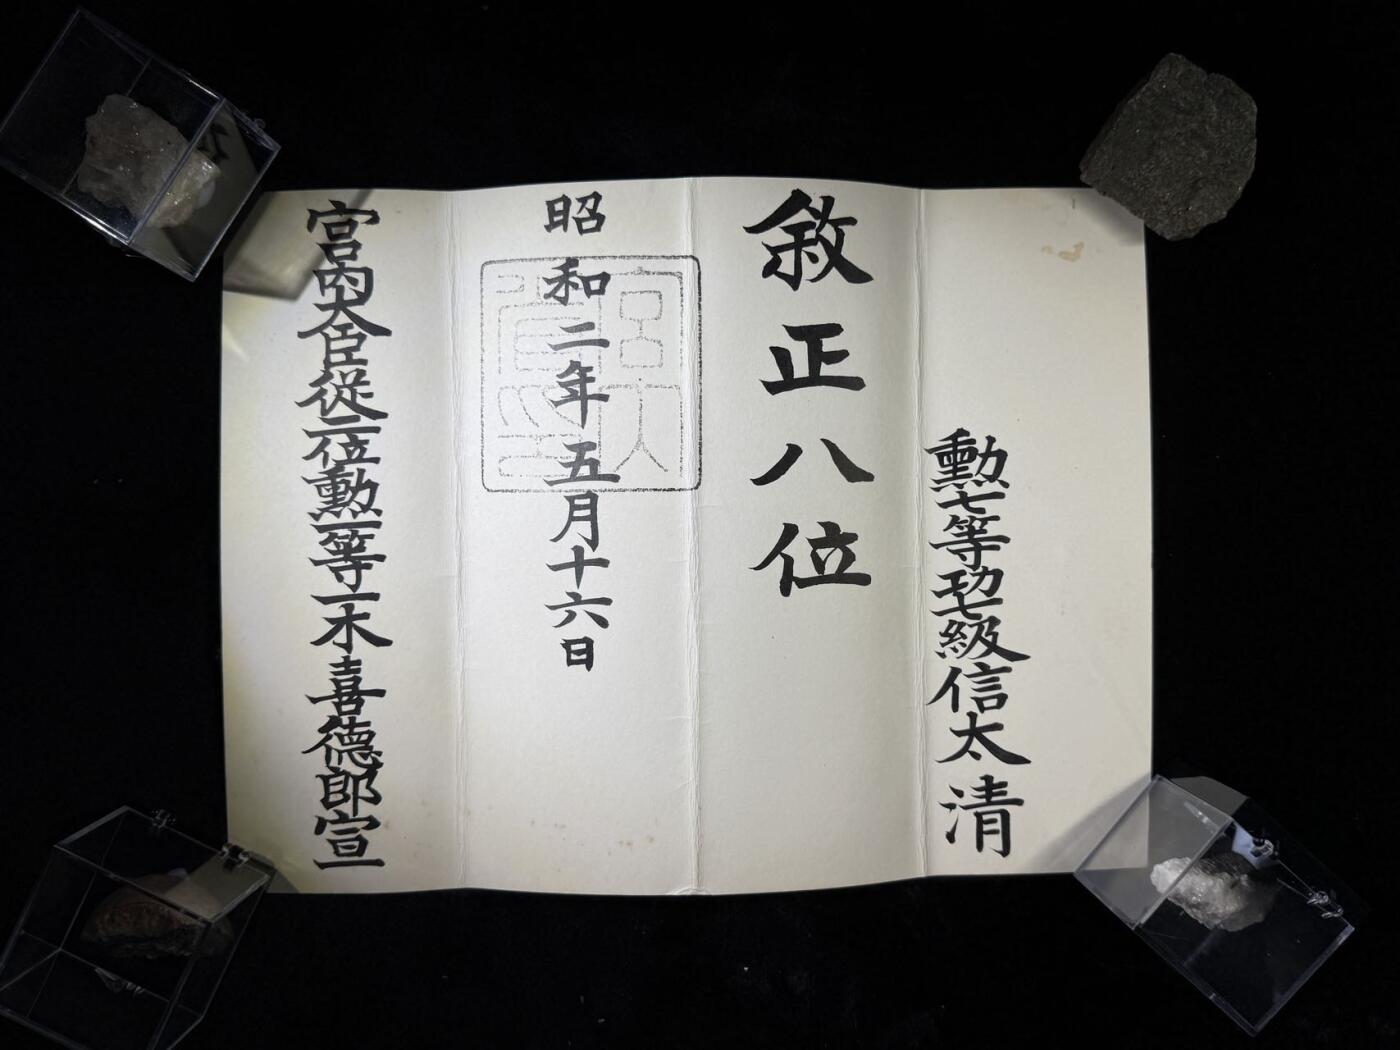 勲七等功七級信太清
敘正八位
昭和二年五月十六日
宮内大臣從二位勲一等一木喜德郎宣